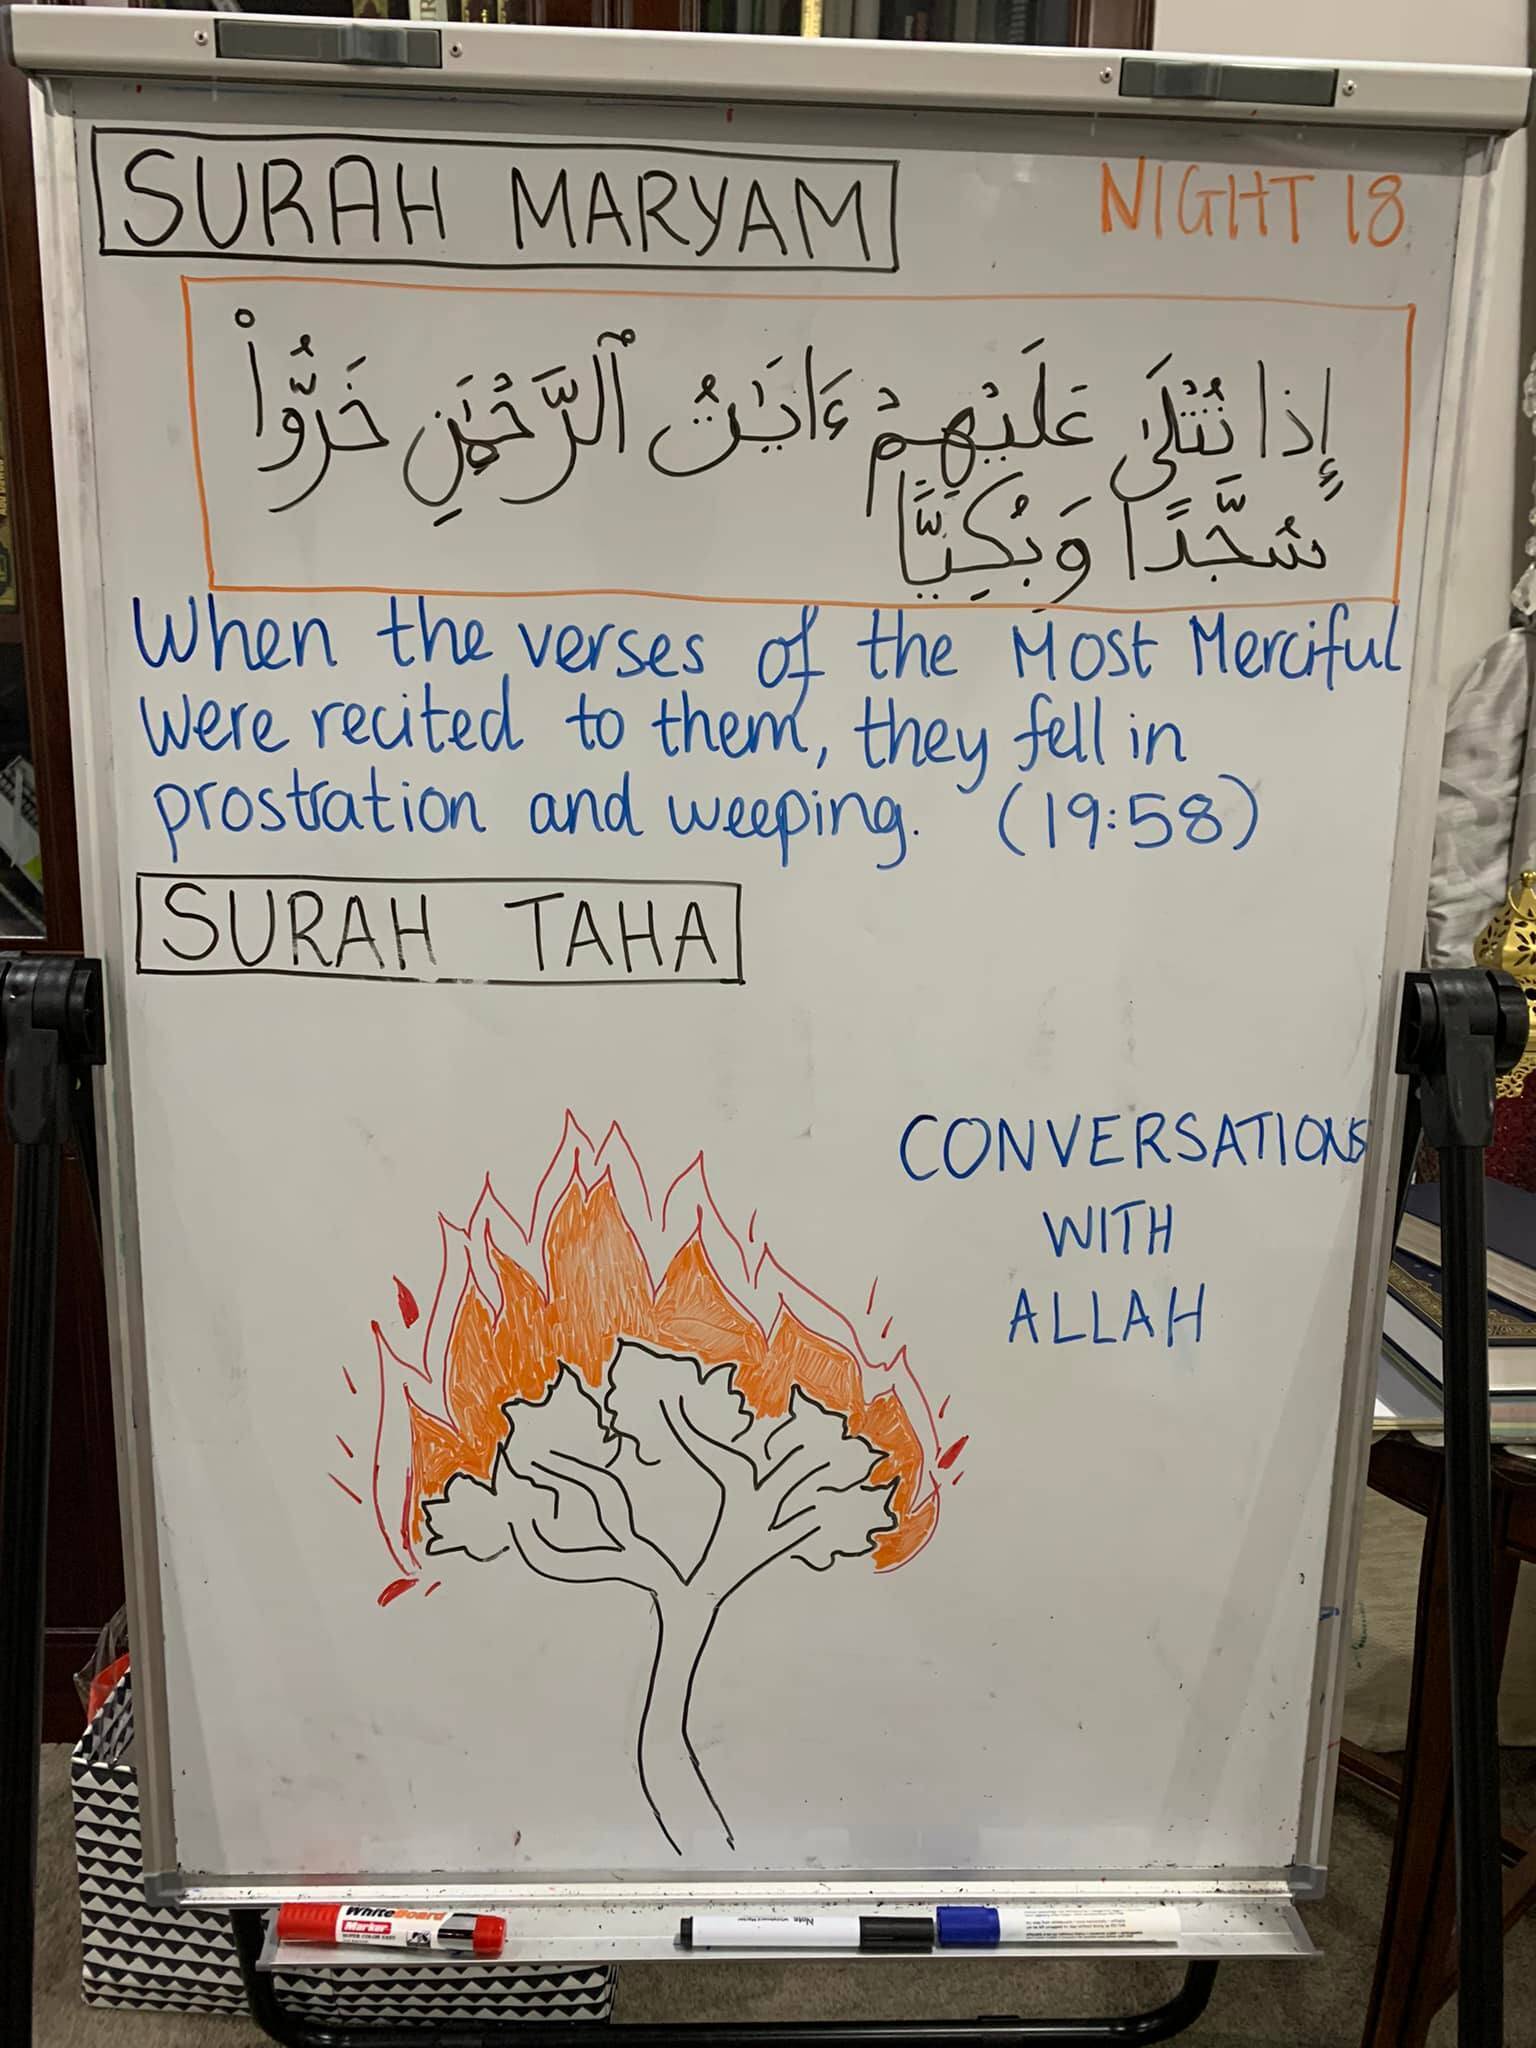 SURAH MARYAM
NIGHT 18
إِذَا تُتْلَىٰ عَلَيْهِمْ ءَايَـٰتُ ٱلرَّحْمَـٰنِ خَرُّوا۟
سُجَّدًا وَبُكِيًّا
When the verses of the Most Merciful
were recited to them, they fell in
prostration and weeping. (19:58)
SURAH TAHA
CONVERSATIONS
WITH
ALLAH
WhiteBoard
Marker